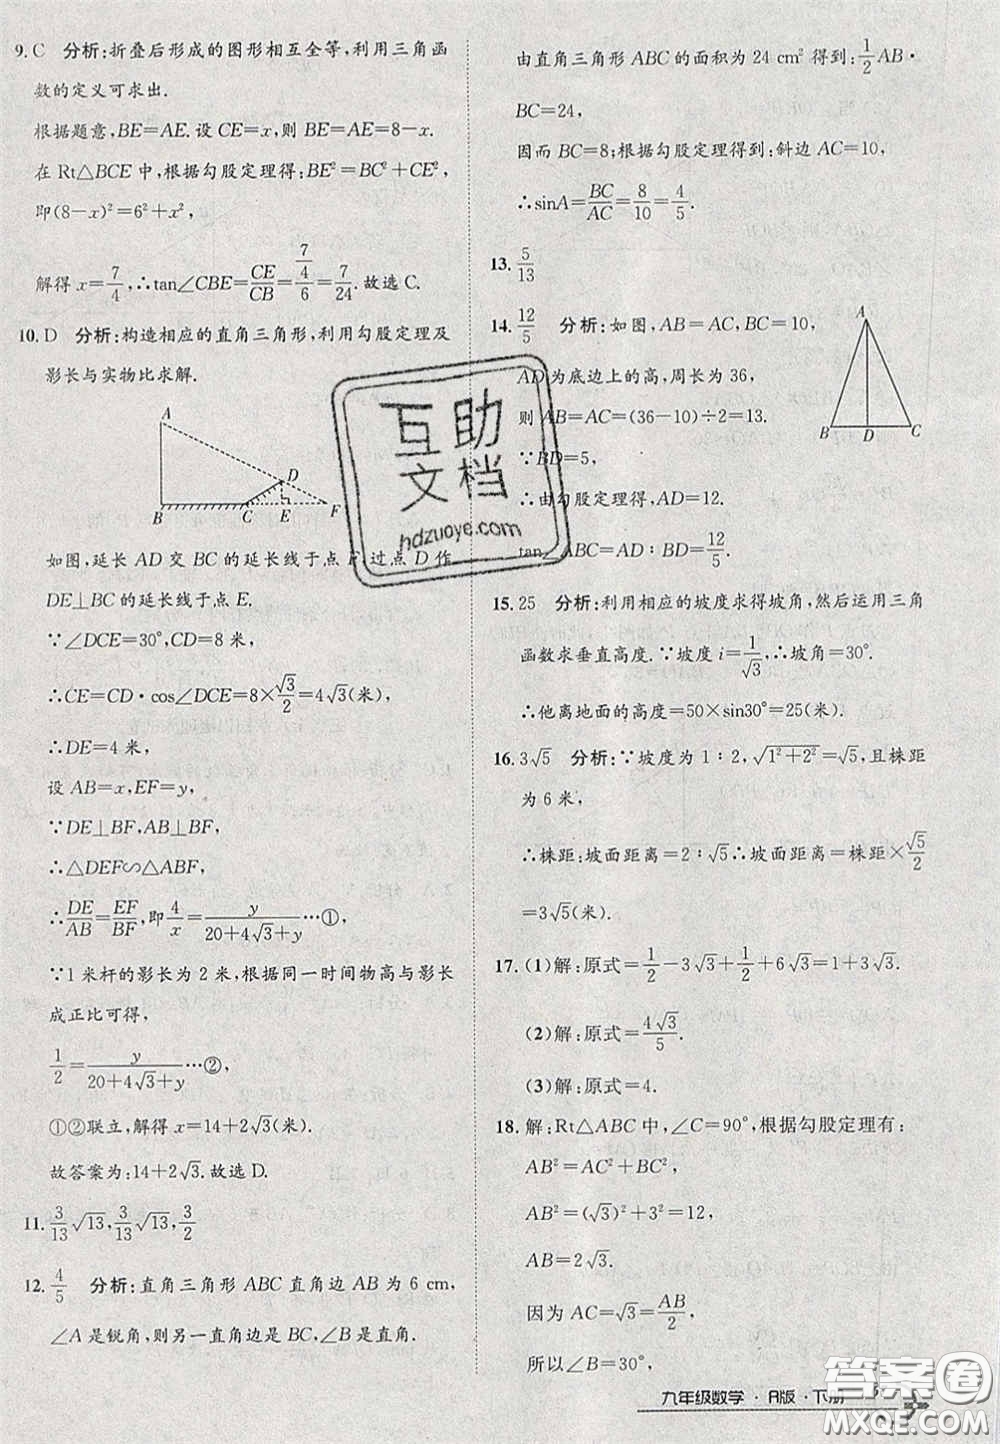 9. C 分析:折叠后形成的图形相互全等,利用三角函
数的定义可求出.
根据题意,BE=AE.设CE=x,则BE=AE=8-x.
在Rt△BCE中,根据勾股定理得:BE²=BC²+CE²,
即(8-x)²=6²+x²,
解得x=7/4,∴tan∠CBE=CE/CB=(7/4)/6=7/24.故选C.
10. D 分析:构造相应的直角三角形,利用勾股定理及
影长与实物比求解.
A
D
B C E F
如图,延长AD交BC的延长线于点F,过点D作
DE⊥BC的延长线于点E.
∵∠DCE=30°,CD=8米,
∴CE=CD·cos∠DCE=8×√3/2=4√3(米),
∴DE=4米,
设AB=x,EF=y,
∵DE⊥BF,AB⊥BF,
∴△DEF∽△ABF,
∴DE/AB=EF/BF,即4/x=y/(20+4√3+y)…①,
∵1米杆的影长为2米,根据同一时间物高与影长
成正比可得,
1/2=y/(20+4√3+y)…②,
①②联立,解得x=14+2√3(米).
故答案为:14+2√3.故选D.
11. 3/13√13,3/13√13,3/2
12. 4/5 分析:直角三角形ABC直角边AB为6 cm,
∠A是锐角,则另一直角边是BC,∠B是直角.
由直角三角形ABC的面积为24 cm²得到:1/2AB·
BC=24,
因而BC=8;根据勾股定理得到:斜边AC=10,
∴sinA=BC/AC=8/10=4/5.
13. 5/13
14. 12/5 分析:如图,AB=AC,BC=10,
AD为底边上的高,周长为36,
则AB=AC=(36-10)÷2=13.
∵BD=5,
∴由勾股定理得,AD=12.
tan∠ABC=AD∶BD=12/5.
A
B D C
15. 25 分析:利用相应的坡度求得坡角,然后运用三角
函数求垂直高度.∵坡度i=1/√3,∴坡角=30°.
∴他离地面的高度=50×sin30°=25(米).
16. 3√5 分析:∵坡度为1∶2,√(1²+2²)=√5,且株距
为6米,
∴株距∶坡面距离=2∶√5∴坡面距离=株距×√5/2
=3√5(米).
17. (1)解:原式=1/2-3√3+1/2+6√3=1+3√3.
(2)解:原式=4√3/5.
(3)解:原式=4.
18. 解:Rt△ABC中,∠C=90°,根据勾股定理有:
AB²=AC²+BC²,
AB²=(√3)²+3²=12,
AB=2√3.
因为AC=√3=AB/2,
所以∠B=30°,
九年级数学·R版·下册
互助文档
hdzuoye.com
答案圈
MXQE.COM